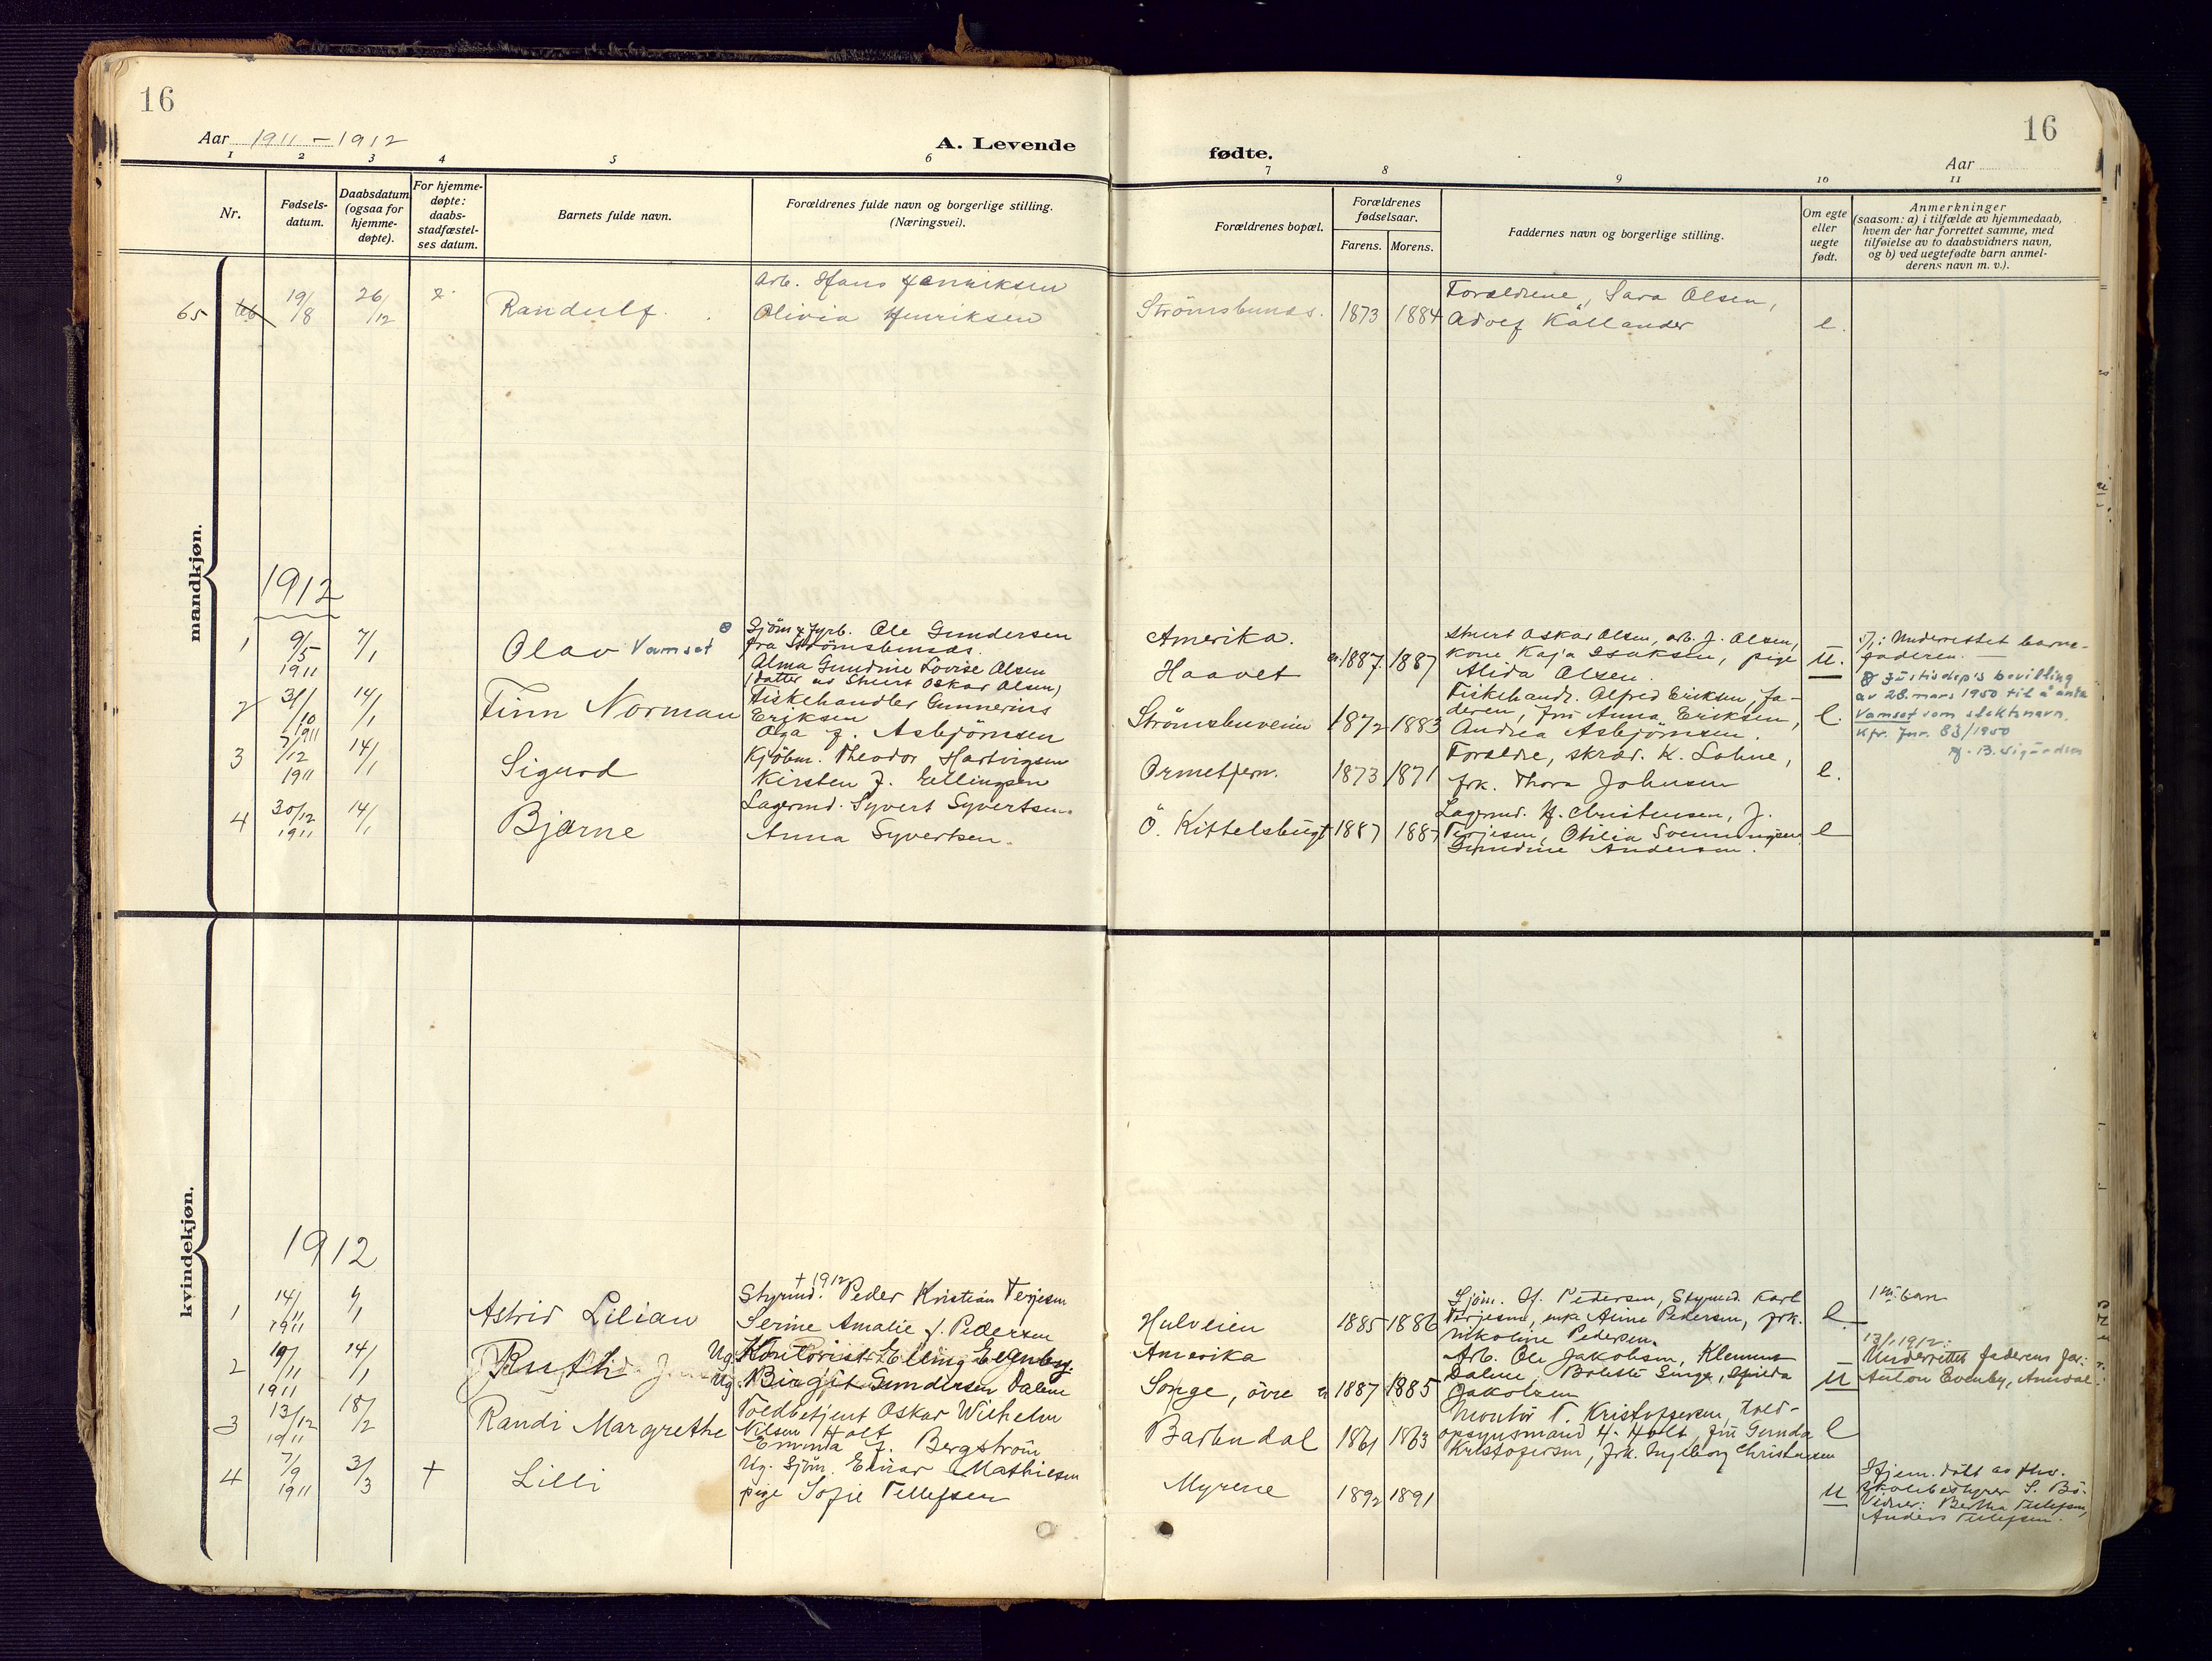 16
16
Aar 1911 - 1912
A. Levende
fødte.
Aar
1 2 3 4 5 6 7 8 9 10 11
Nr.
Fødsels-
datum.
Daabsdatum
(ogsaa for
hjemme-
døpte).
For hjemme-
døpte:
daabs-
stadfæstel-
ses datum.
Barnets fulde navn.
Forældrenes fulde navn og borgerlige stilling.
(Næringsvei).
Forældrenes bopæl.
Forældrenes
fødselsaar.
Farens. Morens.
Faddernes navn og borgerlige stilling.
Om egte
eller
uegte
født.
Anmerkninger
(saasom: a) i tilfælde av hjemmedaab,
hvem der har forrettet samme, med
tilføielse av to daabsvidners navn,
og b) ved uegtefødte barn anmel-
derens navn m. v.).
mandkjøn.
65 19/8 26/12 Randulf.
Arb. Hans Henriksen
Olivia Henriksen
Strömsbunds. 1873 1884
Forældrene, Sara Olsen,
Adolf Källander
e.
1912
1 9/5 1911 7/1 Olav Vamset
Sjöm. & fyrb. Ole Gundersen
fra Strömsbunds.
Alma Gundine Lovise Olsen
(datter av Stuert Oskar Olsen)
Amerika.
Haavet 1887 1887
Stuert Oskar Olsen, arb. J. Olsen,
kone Kaja Isaksen, pige
Alida Olsen.
u.
5/1: Underrettet barne-
faderen.
Justisdep's bevilling
av 28. mars 1950 til å anta
Vamset som slektsnavn.
Kfr. Jnr. 83/1950
2 31/10 1911 14/1 Finn Norman
Fiskehandler Gunnerius
Eriksen
Olga f. Asbjörnsen
Strömsbuveien 1872 1883
Fiskehandl. Alfred Eriksen, fa-
deren, fru Anna Eriksen,
Andrea Asbjörnsen.
e.
3 7/12 1911 14/1 Sigurd
Kjöbm. Theodor Hartvigsen
Kirsten f. Ellingsen
Ormetjern. 1873 1871
Forældre, skræd. K. Lohne,
frk. Thora Johnsen
e.
4 30/12 1911 14/1 Bjarne
Lagermd. Syvert Syvertsen.
Anna Syvertsen.
Ö. Kittelsbugt 1887 1887
Lagermd. H. Christensen, J.
Terjesen, Otilia Svenningsen,
Gundine Andersen.
e
kvindekjøn.
1912
1 14/11 1911 Astrid Lilian
† 1912
Styrmd. Peder Kristian Terjesen
Serine Amalie f. Pedersen
Hulveien 1885 1886
Sjöm. O. Pedersen, Styrmd. Karl
Terjesen, enke Anne Pedersen, frk.
Nikoline Pedersen.
e.
2 19/11 1911 14/1 Ruth
Ug. Kontorist Elling Evenby
Ug. Birgit Gundersen Dalene
Amerika
Songe, övre 1887 1885
Arb. Ole Jakobsen, Klemmet
Dalene,
Jakobsen
u
13/1 1912:
Underrettet faderens far:
Anton Evenby, Arendal
3 13/12 1911 18/2 Randi Margrethe
Toldbetjent Oskar Wilhelm
Nilsen Holt
Emma f. Bergström
Barbudal 1861 1863
Montör T. Kristofersen, told-
opsynsmand H. Holt, fru Gunda
Kristofersen, frk. Ingeborg Christensen
e
4 7/9 1911 3/3 † Lilli
Ug. Sjöm. Einar Mathiesen
pige Sofie Tellefsen
Myrene 1892 1891
u
Hjem. döbt av fhv.
Skolebestyrer S. Bö.
Vidner: Bertha Tellefsen,
Anders Tellefsen.